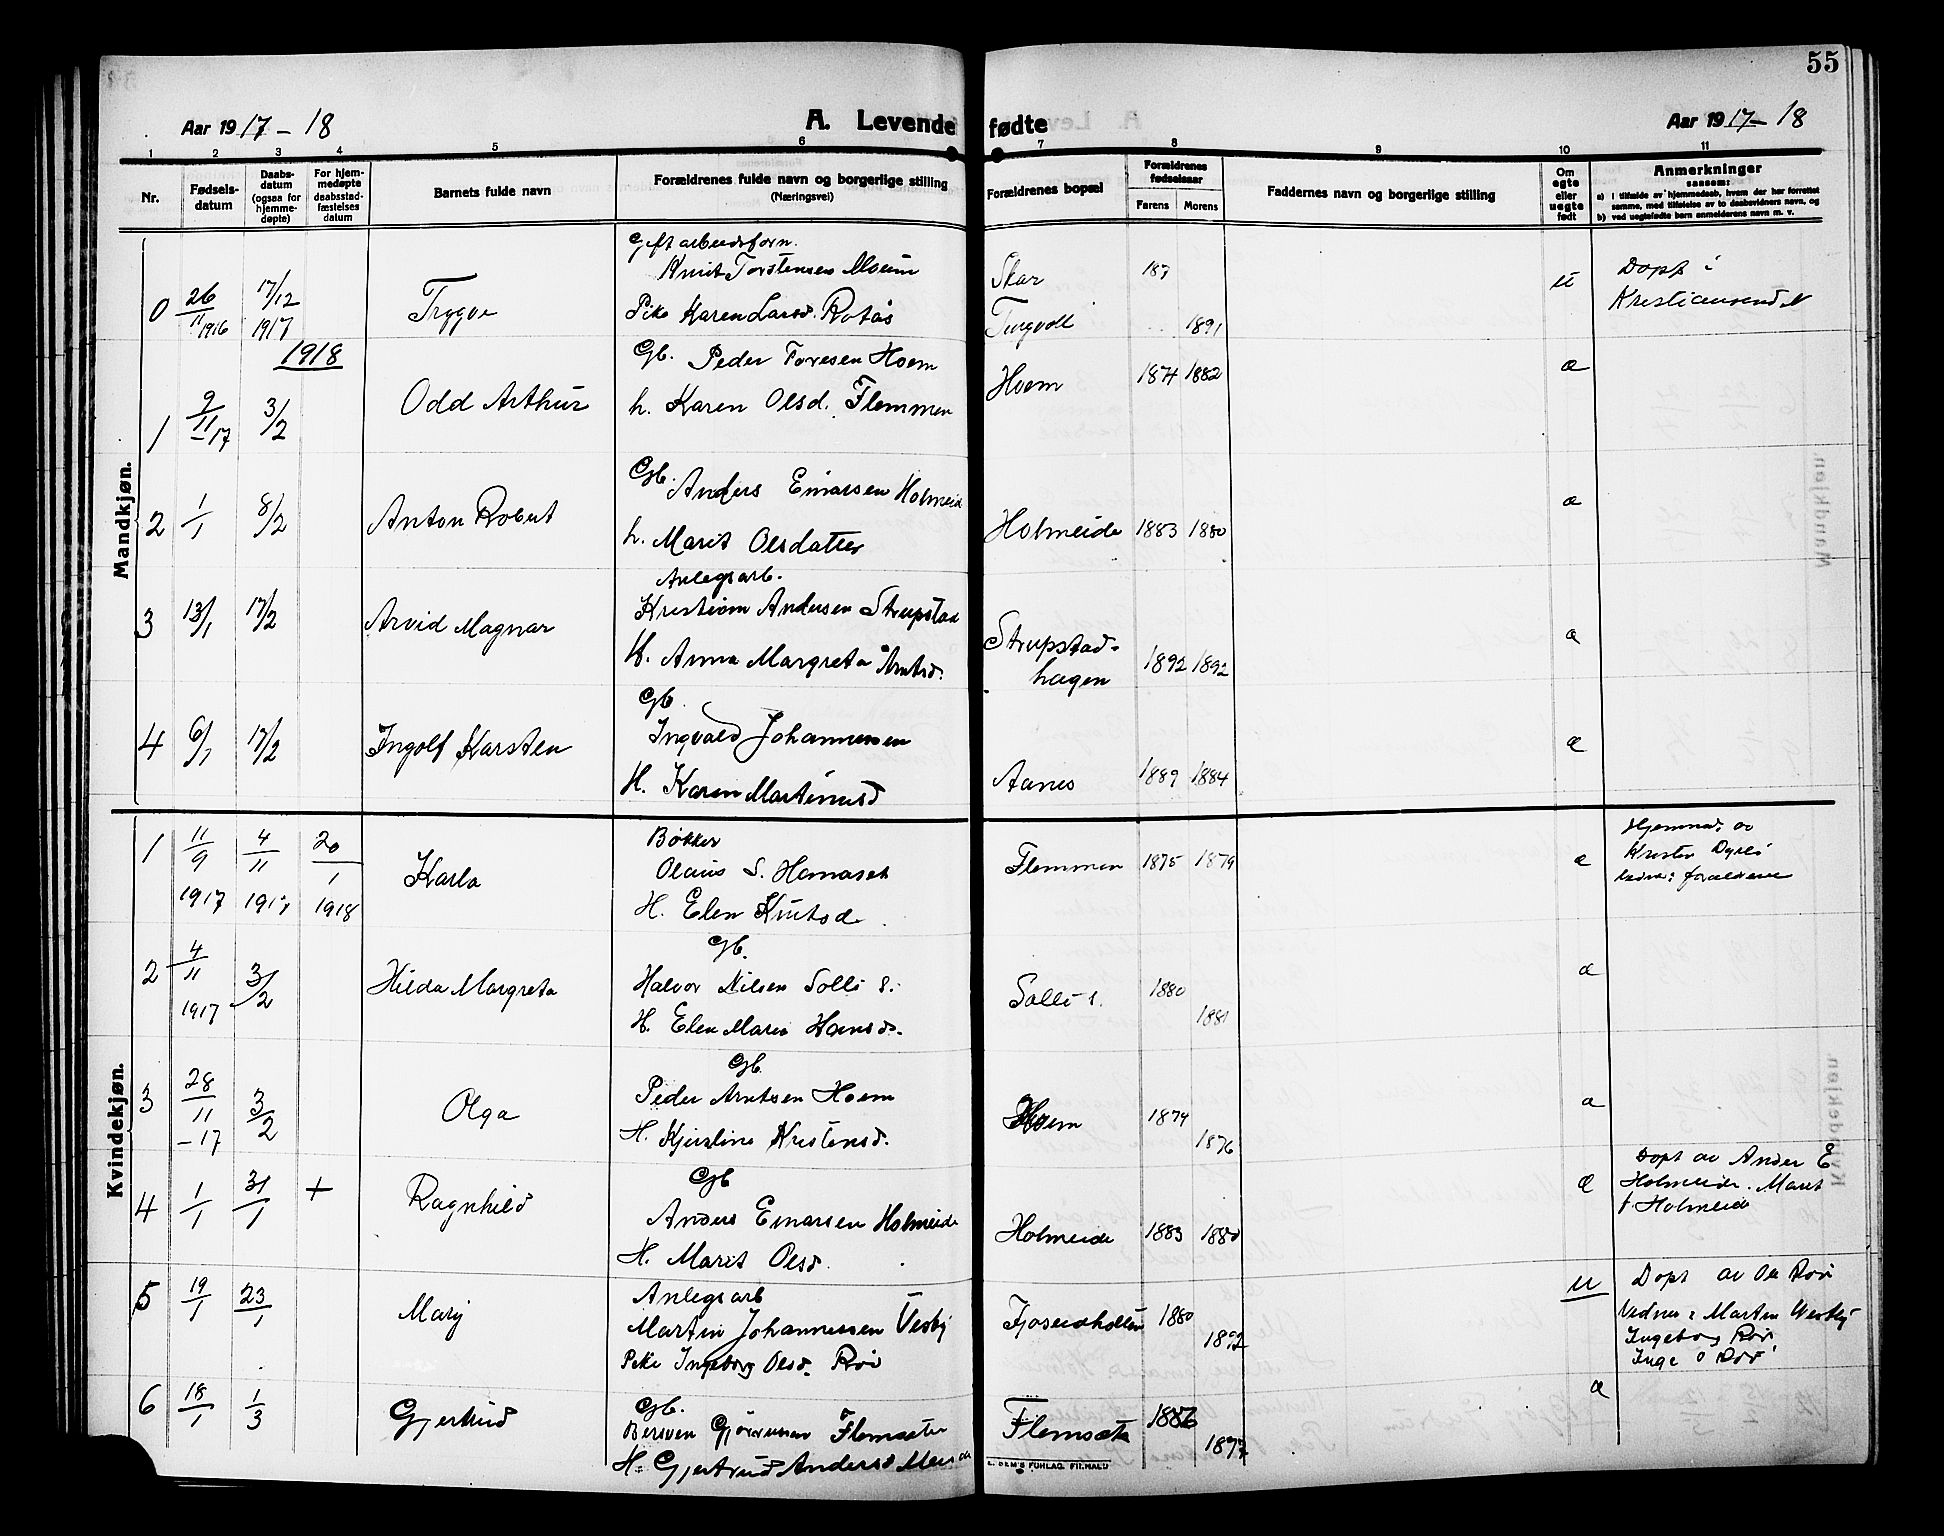 55
Aar 1917-18
A. Levende fødte
Aar 1917-18
1 2 3 4 5 6 7 8 9 10 11
Nr.
Fødsels-
datum
Daabs-
datum
(ogsaa for
hjemme-
døpte)
For hjem-
medøpte
daabsstad-
fæstelses
datum
Barnets fulde navn
Forældrenes fulde navn og borgerlige stilling
(Næringsvei)
Forældrenes bopæl
Forældrenes
fødselsaar
Farens Morens
Faddernes navn og borgerlige stilling
Om
egte
eller
uegte
født
Anmerkninger
saasom:
a) i tilfælde av hjemmedaab, hvem der har forrettet
samme, med tilføielse av to daabsvidners navn, og
b) ved uegtefødte barn anmelderens navn m. v.
Mandkjøn.
0 26/11 1916 17/12 1917 Trygve
Gift arbeidsform.
Knut Torstensen Moeim
Pike Karen Larsd. Rotås
Skar
Tingvoll
187
1891
u
Døpt i
Kristiansund N
1918
1 9/11-17 3/2 Odd Arthur
Gb. Peder Toresen Hoem
h. Karen Olsd. Flemmen
Hoem 1874 1882 æ
2 1/1 8/2 Anton Robert
Gb. Anders Einarsen Holmeide
h. Marit Olsdatter
Holmeide 1883 1880 æ
3 13/1 17/2 Arvid Magnar
Anlegsarb.
Kristian Andersen Strupstad
H. Anna Margreta Arntsd.
Strupstad-
hagen 1892 1892 æ
4 6/1 17/2 Ingolf Karsten
Gb.
Ingvald Johannessen
H. Karen Martinusd
Aanes 1889 1884 æ
Kvindekjøn.
1 11/9 1917 4/11 1917 20/1 1918 Karla
Bøkker
Olaus S. Hamaset
H. Elen Knutsd.
Flemmen 1875 1879 æ
Hjemmed. av
Kristen
forældrene
2 4/11 1917 3/2 Hilda Margreta
Gb.
Halvor Nilsen Solli s.
H. Elen Marie Hansd.
Solli s. 1880 1881 æ
3 28/11-17 3/2 Olga
Gb.
Peder Arntsen Hoem
H. Kjerstine Kristensd.
Hoem 1874 1876 æ
4 1/1 31/1 + Ragnhild
Gb
Anders Einarsen Holmeide
H. Marit Olsd.
Holmeide 1883 1880 æ
Døpt av Anders E
Holmeide. Marit
Holmeide
5 19/1 23/1 Mary
Anlegsarb
Martin Johannessen Vesby
Pike Ingeborg Olsd. Røv
Fjoseidholten 1880 1892 u
Døpt av Ole Røv
Vidner: Martin Vestby
Ingeborg Røv
Inge O Røv
6 18/1 1/3 Gjertrud
Gb.
Bersven Gjørensen Flemsæter
H. Gjertrud Andersd
Flemsæte 1886 1877 æ